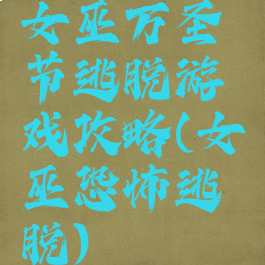 女巫万圣
节逃脱游
戏攻略(女
巫恐怖逃
脱)